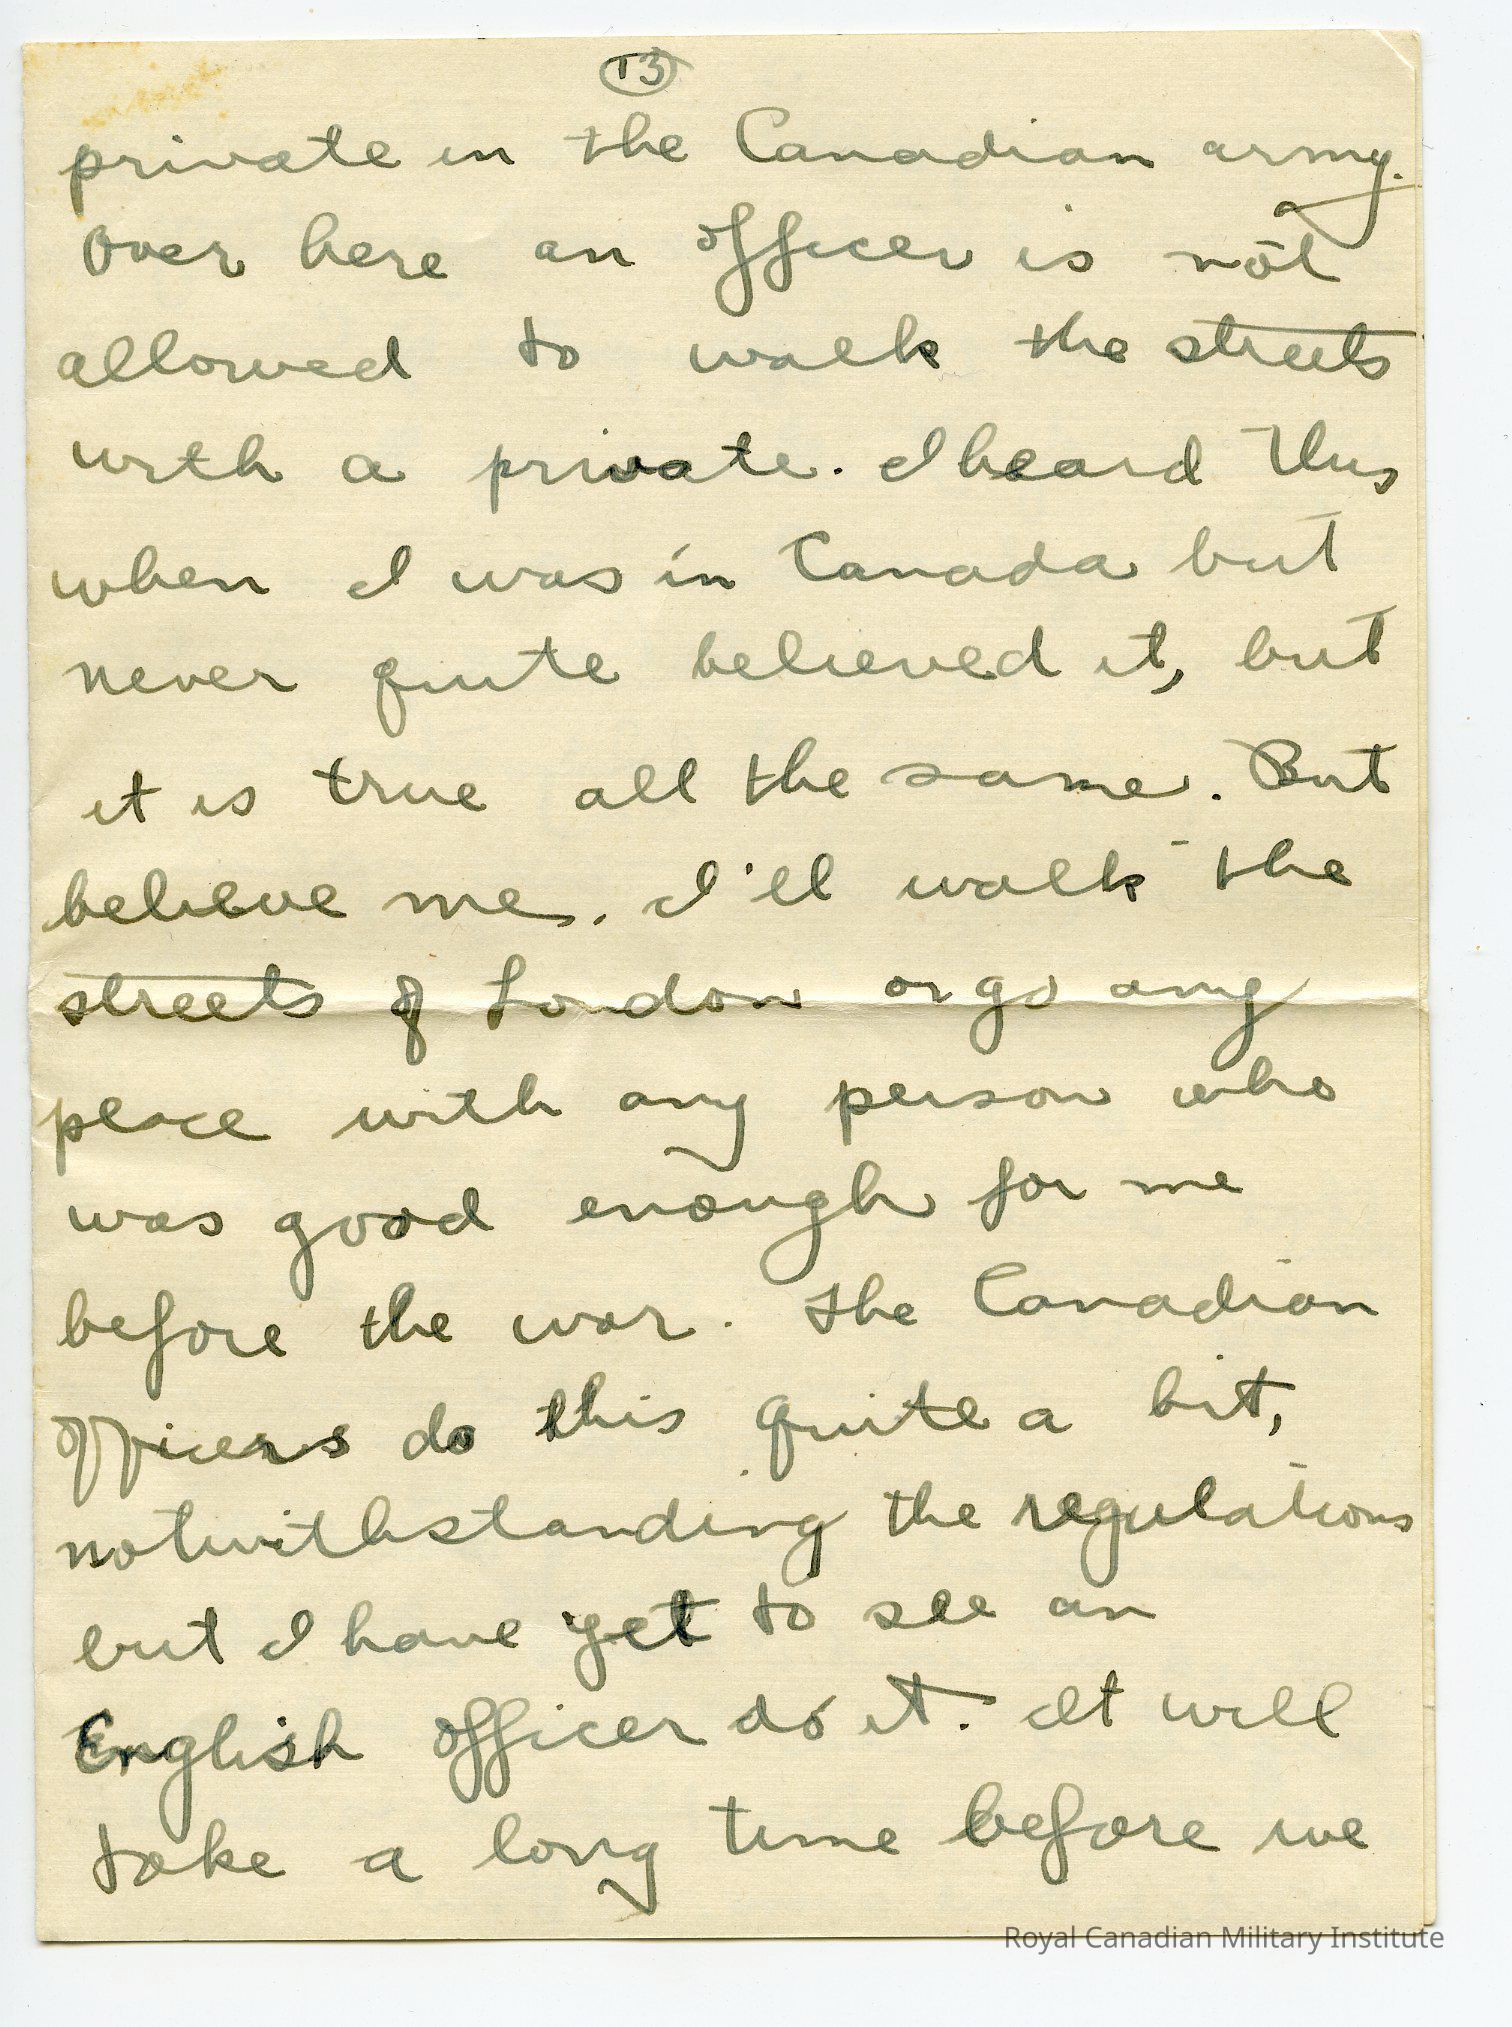 13
private in the Canadian army.
Over here an officer is not
allowed to walk the streets
with a private. I heard this
when I was in Canada but
never quite believed it, but
it is true all the same. But
believe me. I'll walk the
streets of London or go any
place with any person who
was good enough for me
before the war. The Canadian
officers do this quite a bit,
notwithstanding the regulations
but I have yet to see an
English officer do it. It will
take a long time before we
Royal Canadian Military Institute